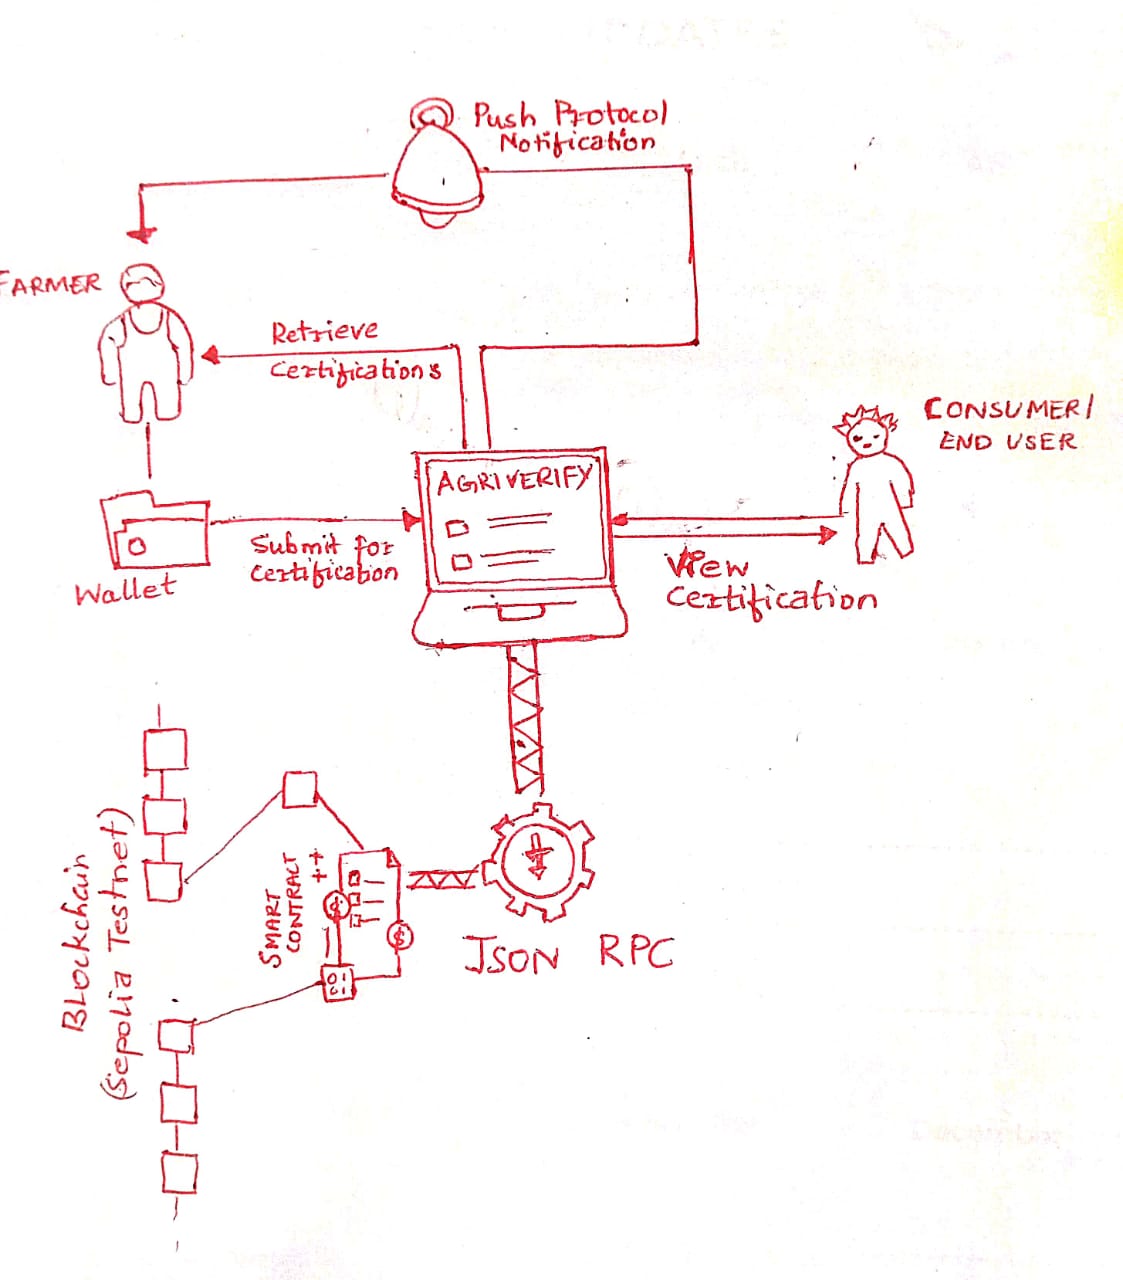 Push Protocol
Notification
FARMER
Retrieve
Certifications
CONSUMER/
END USER
AGRIVERIFY
Submit for
Certification
Wallet
View
Certification
Blockchain
(Sepolia Testnet)
SMART
CONTRACT
++
$
$
01
01
JSON RPC